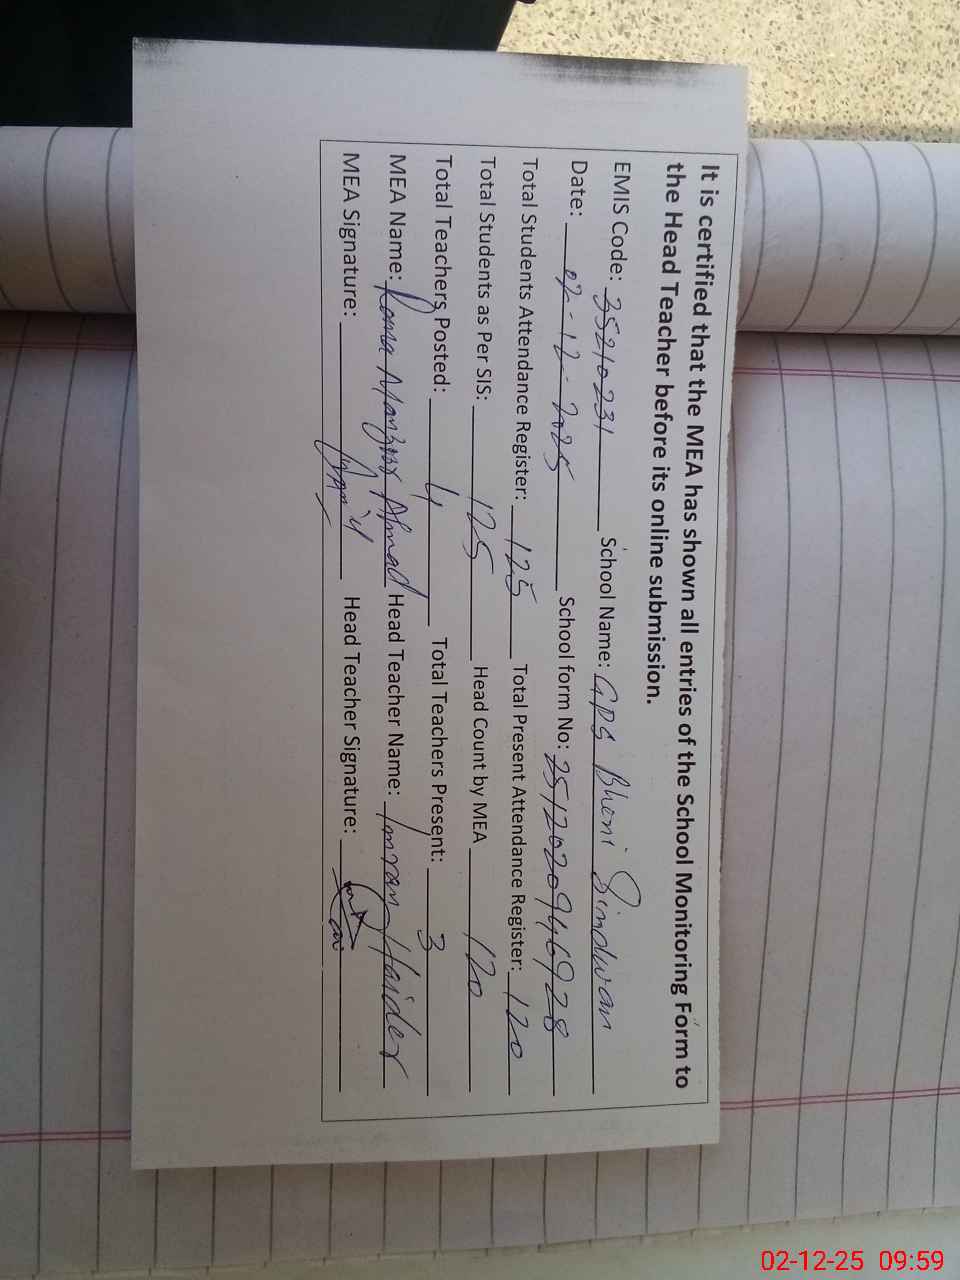 It is certified that the MEA has shown all entries of the School Monitoring Form to
the Head Teacher before its online submission.
EMIS Code: 35210231 School Name: GPS Bheni Simdwan
Date: 02-12-2025 School form No: 2512020946928
Total Students Attendance Register: 125 Total Present Attendance Register: 120
Total Students as Per SIS: 125 Head Count by MEA 120
Total Teachers Posted: 4 Total Teachers Present: 3
MEA Name: Rana Manzoor Ahmad Head Teacher Name: Imran Haider
MEA Signature: Head Teacher Signature:
02-12-25 09:59